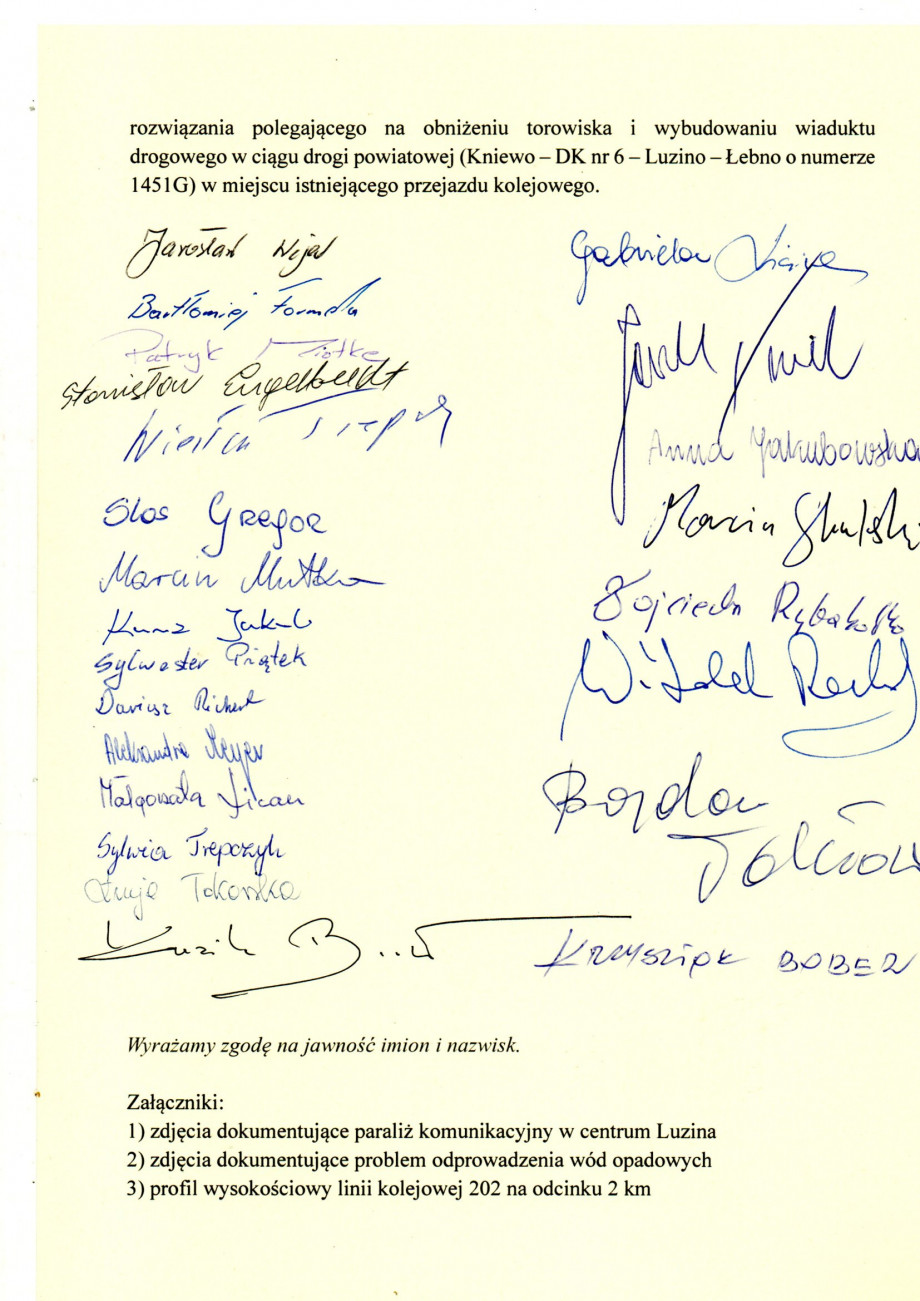 rozwiązania polegającego na obniżeniu torowiska i wybudowaniu wiaduktu
drogowego w ciągu drogi powiatowej (Kniewo – DK nr 6 – Luzino – Łebno o numerze
1451G) w miejscu istniejącego przejazdu kolejowego.
Jarosław Wejer
Bartłomiej Formela
Patryk
Stanisław Engelbrecht
Wiesław
Stos Gregor
Marcin Mutka
Kunz Jakub
Sylwester Piątek
Dariusz Richert
Aleksandra Meyer
Małgorzata
Sylwia Trepczyk
Tokarska
Gabriela
Anna Jakubowska
Marcin
Wojciech
Witold
Bogdan
Krzysztof BOBER
Wyrażamy zgodę na jawność imion i nazwisk.
Załączniki:
1) zdjęcia dokumentujące paraliż komunikacyjny w centrum Luzina
2) zdjęcia dokumentujące problem odprowadzenia wód opadowych
3) profil wysokościowy linii kolejowej 202 na odcinku 2 km